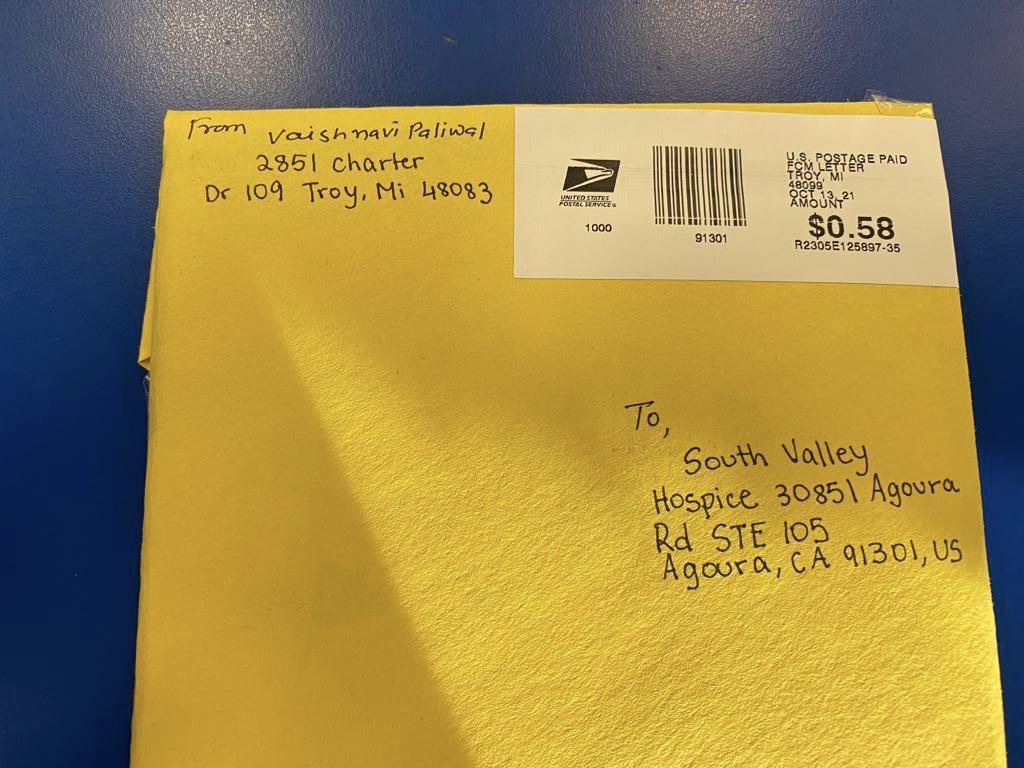 From Vaishnavi Paliwal
2851 Charter
Dr 109 Troy, Mi 48083
UNITED STATES
POSTAL SERVICE®
1000
91301
U.S. POSTAGE PAID
FCM LETTER
TROY, MI
48099
OCT 13, 21
AMOUNT
$0.58
R2305E125897-35
To,
South Valley
Hospice 30851 Agoura
Rd STE 105
Agoura, CA 91301, US